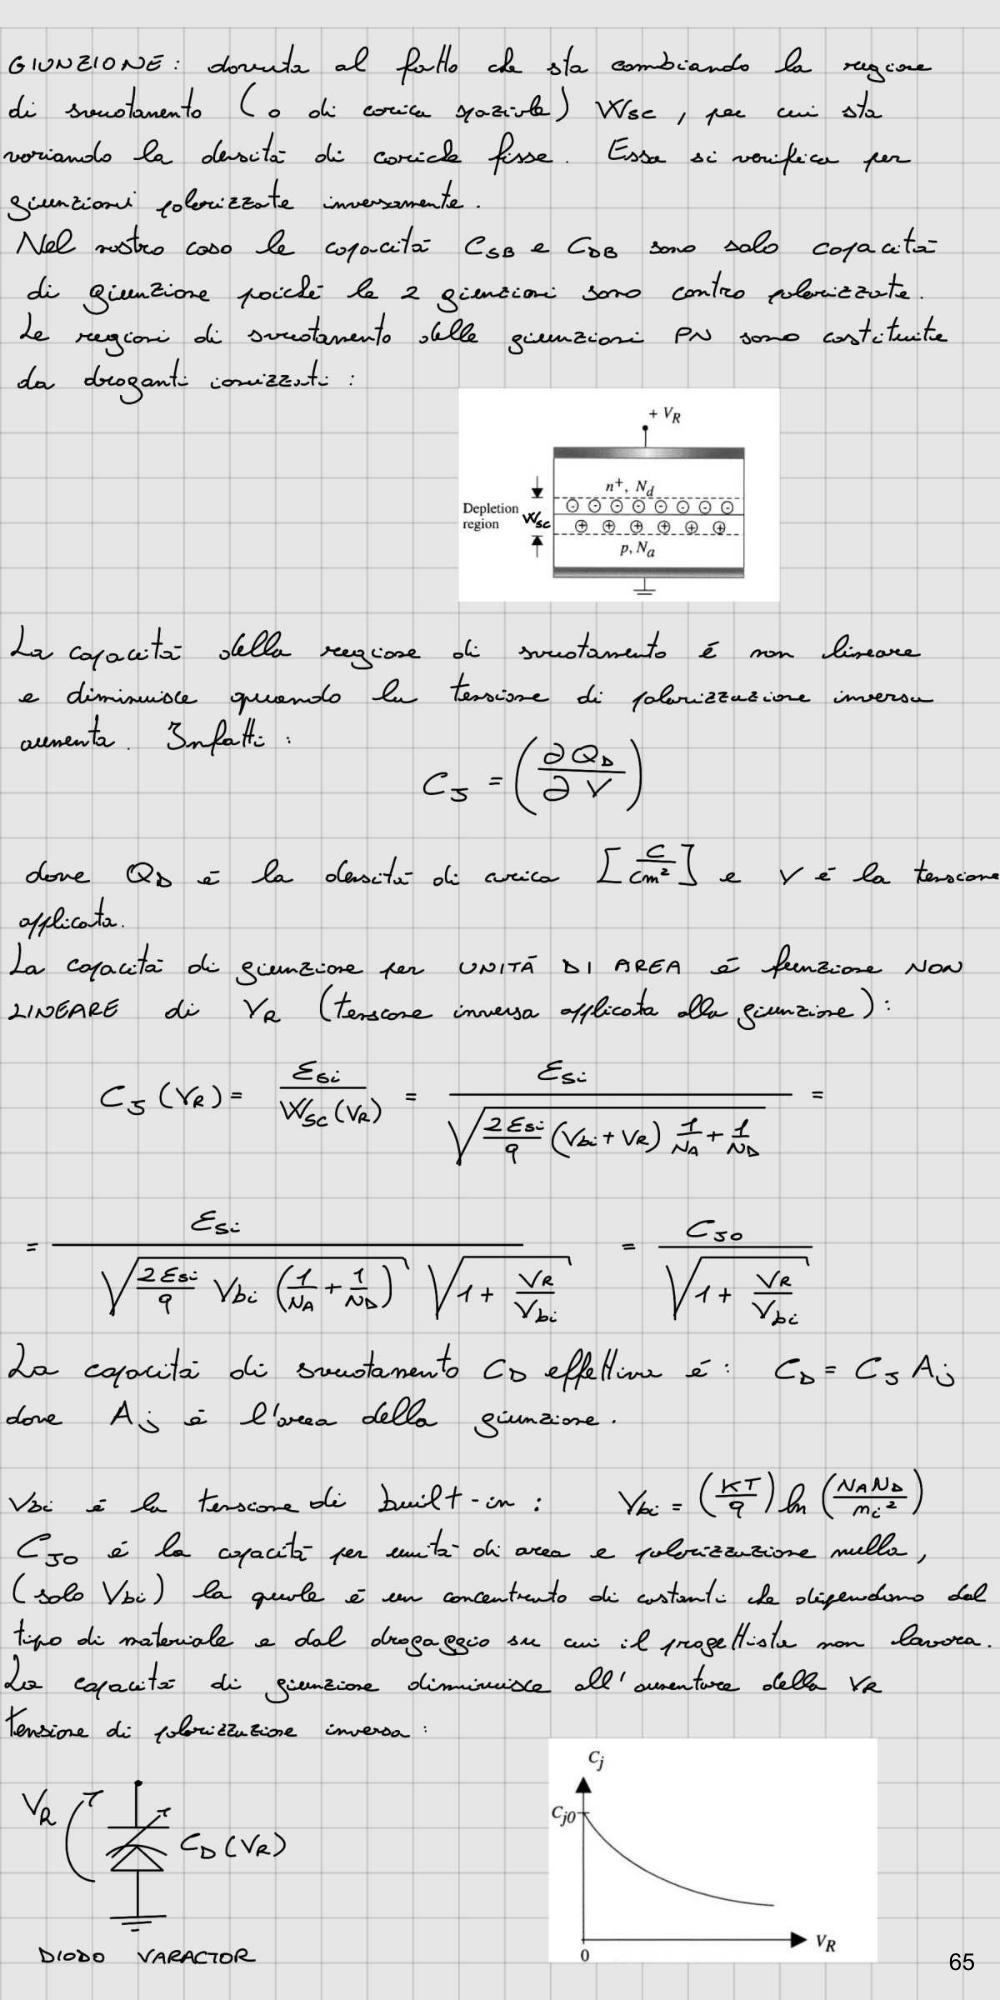 GIUNZIONE: dovuta al fatto che sta cambiando la regione
di svuotamento (o di carica spaziale) Wsc, per cui sta
variando la densità di cariche fisse. Essa si verifica per
giunzioni polarizzate inversamente.
Nel nostro caso le capacità C_SB e C_DB sono solo capacità
di giunzione poiché le 2 giunzioni sono contro polarizzate.
Le regioni di svuotamento delle giunzioni PN sono costituite
da droganti ionizzati:
+ V_R
n⁺, N_d
Depletion
region
Wsc
p, N_a
La capacità della regione di svuotamento é non lineare
e diminuisce quando la tensione di polarizzazione inversa
aumenta. Infatti:
C_J = (∂Q_D / ∂V)
dove Q_D é la densità di carica [C/cm²] e V é la tensione
applicata.
La capacità di giunzione per UNITÁ DI AREA é funzione NON
LINEARE di V_R (tensione inversa applicata alla giunzione):
C_J (V_R) = ε_Si / W_SC (V_R) = ε_Si / √(2ε_Si/q (V_bi + V_R) 1/N_A + 1/N_D) =
= ε_Si / (√(2ε_Si/q V_bi (1/N_A + 1/N_D)) √(1 + V_R/V_bi)) = C_J0 / √(1 + V_R/V_bi)
La capacità di svuotamento C_D effettiva é: C_D = C_J A_j
dove A_j é l'area della giunzione.
V_bi é la tensione di built-in: V_bi = (KT/q) ln (N_A N_D / n_i²)
C_J0 é la capacità per unità di area e polarizzazione nulla,
(solo V_bi) la quale é un concentrato di costanti che dipendono dal
tipo di materiale e dal drogaggio su cui il progettista non lavora.
La capacità di giunzione diminuisce all'aumentare della V_R
tensione di polarizzazione inversa:
C_j
C_j0
V_R
C_D (V_R)
V_R
0
DIODO VARACTOR
65